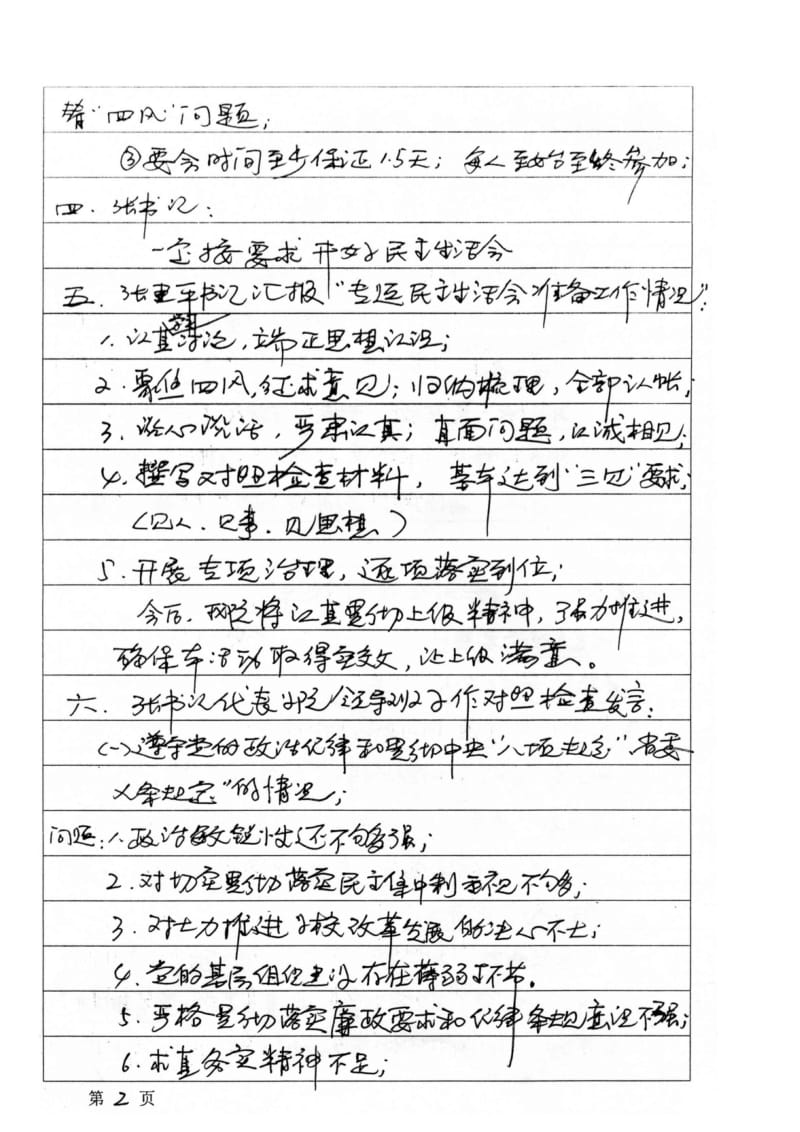 着“四风”问题；
③要会时间至少保证1.5天；每人至始至终参加；
四．张书记：
一定按要求开好民主生活会
五．张里平书记汇报“专题民主生活会准备工作情况”：
1．认真学习讨论，端正思想认识；
2．聚焦四风，征求意见；归纳梳理，全部认帐；
3．谈心谈话，严肃认真；直面问题，以诚相见；
4．撰写对照检查材料，基本达到“三见”要求；
（见人．见事．见思想）
5．开展专项治理，逐项落实到位；
今后，我院将认真贯彻上级精神，强力推进，
确保本活动取得实效，让上级满意。
六．张书记代表我院领导班子作对照检查发言：
㈠遵守党的政治纪律和贯彻中央“八项规定”省委
“X条规定”的情况；
问题：1.政治敏锐性还不够强；
2．对切实贯彻落实民主集中制重视不够；
3．对大力推进学校改革发展的决心不大；
4．党的基层组织建设存在薄弱环节。
5．严格贯彻落实廉政要求和纪律条规意识不强；
6．求真务实精神不足；
第2页